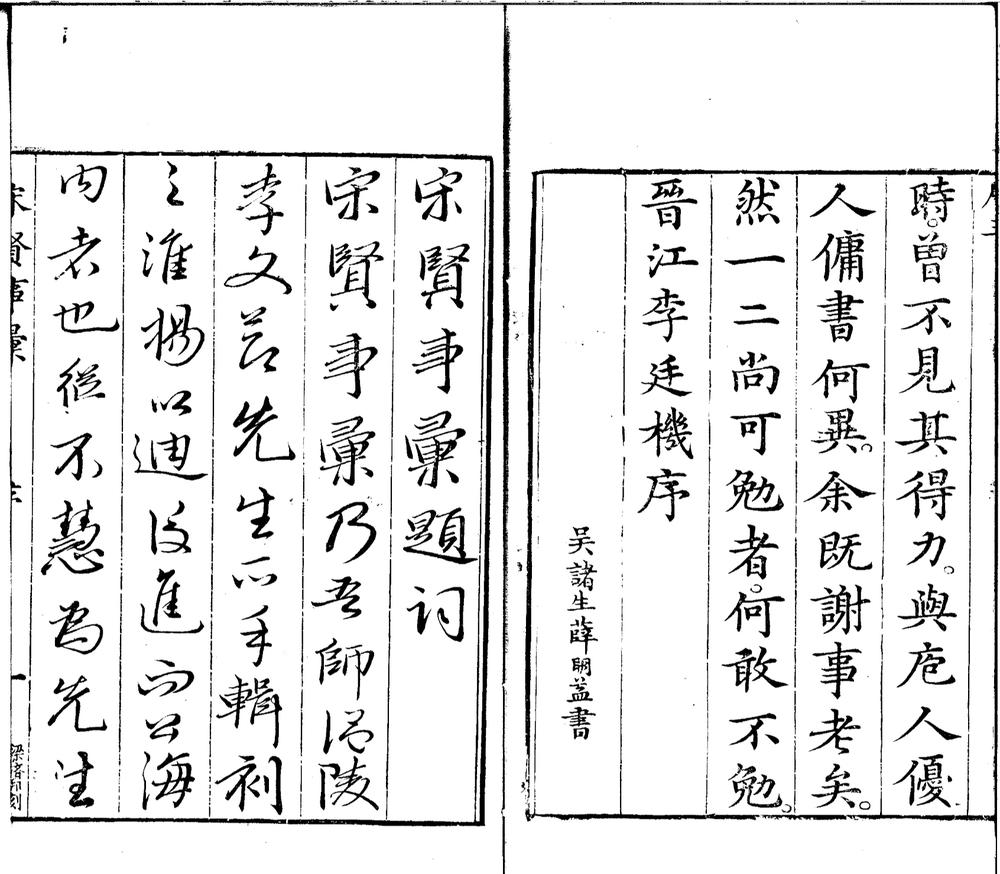 時。曾不見其得力。與庖人優
人傭書何異。余既謝事老矣。
然一二尚可勉者。何敢不勉。
晉江李廷機序
吴諸生薛明益書
宋賢事彙題詞
宋賢事彙乃吾師溫陵
李文節先生所手輯初
之淮揚以迪後進而公海
内者也從不慧為先生
宋賢事彙
序
一